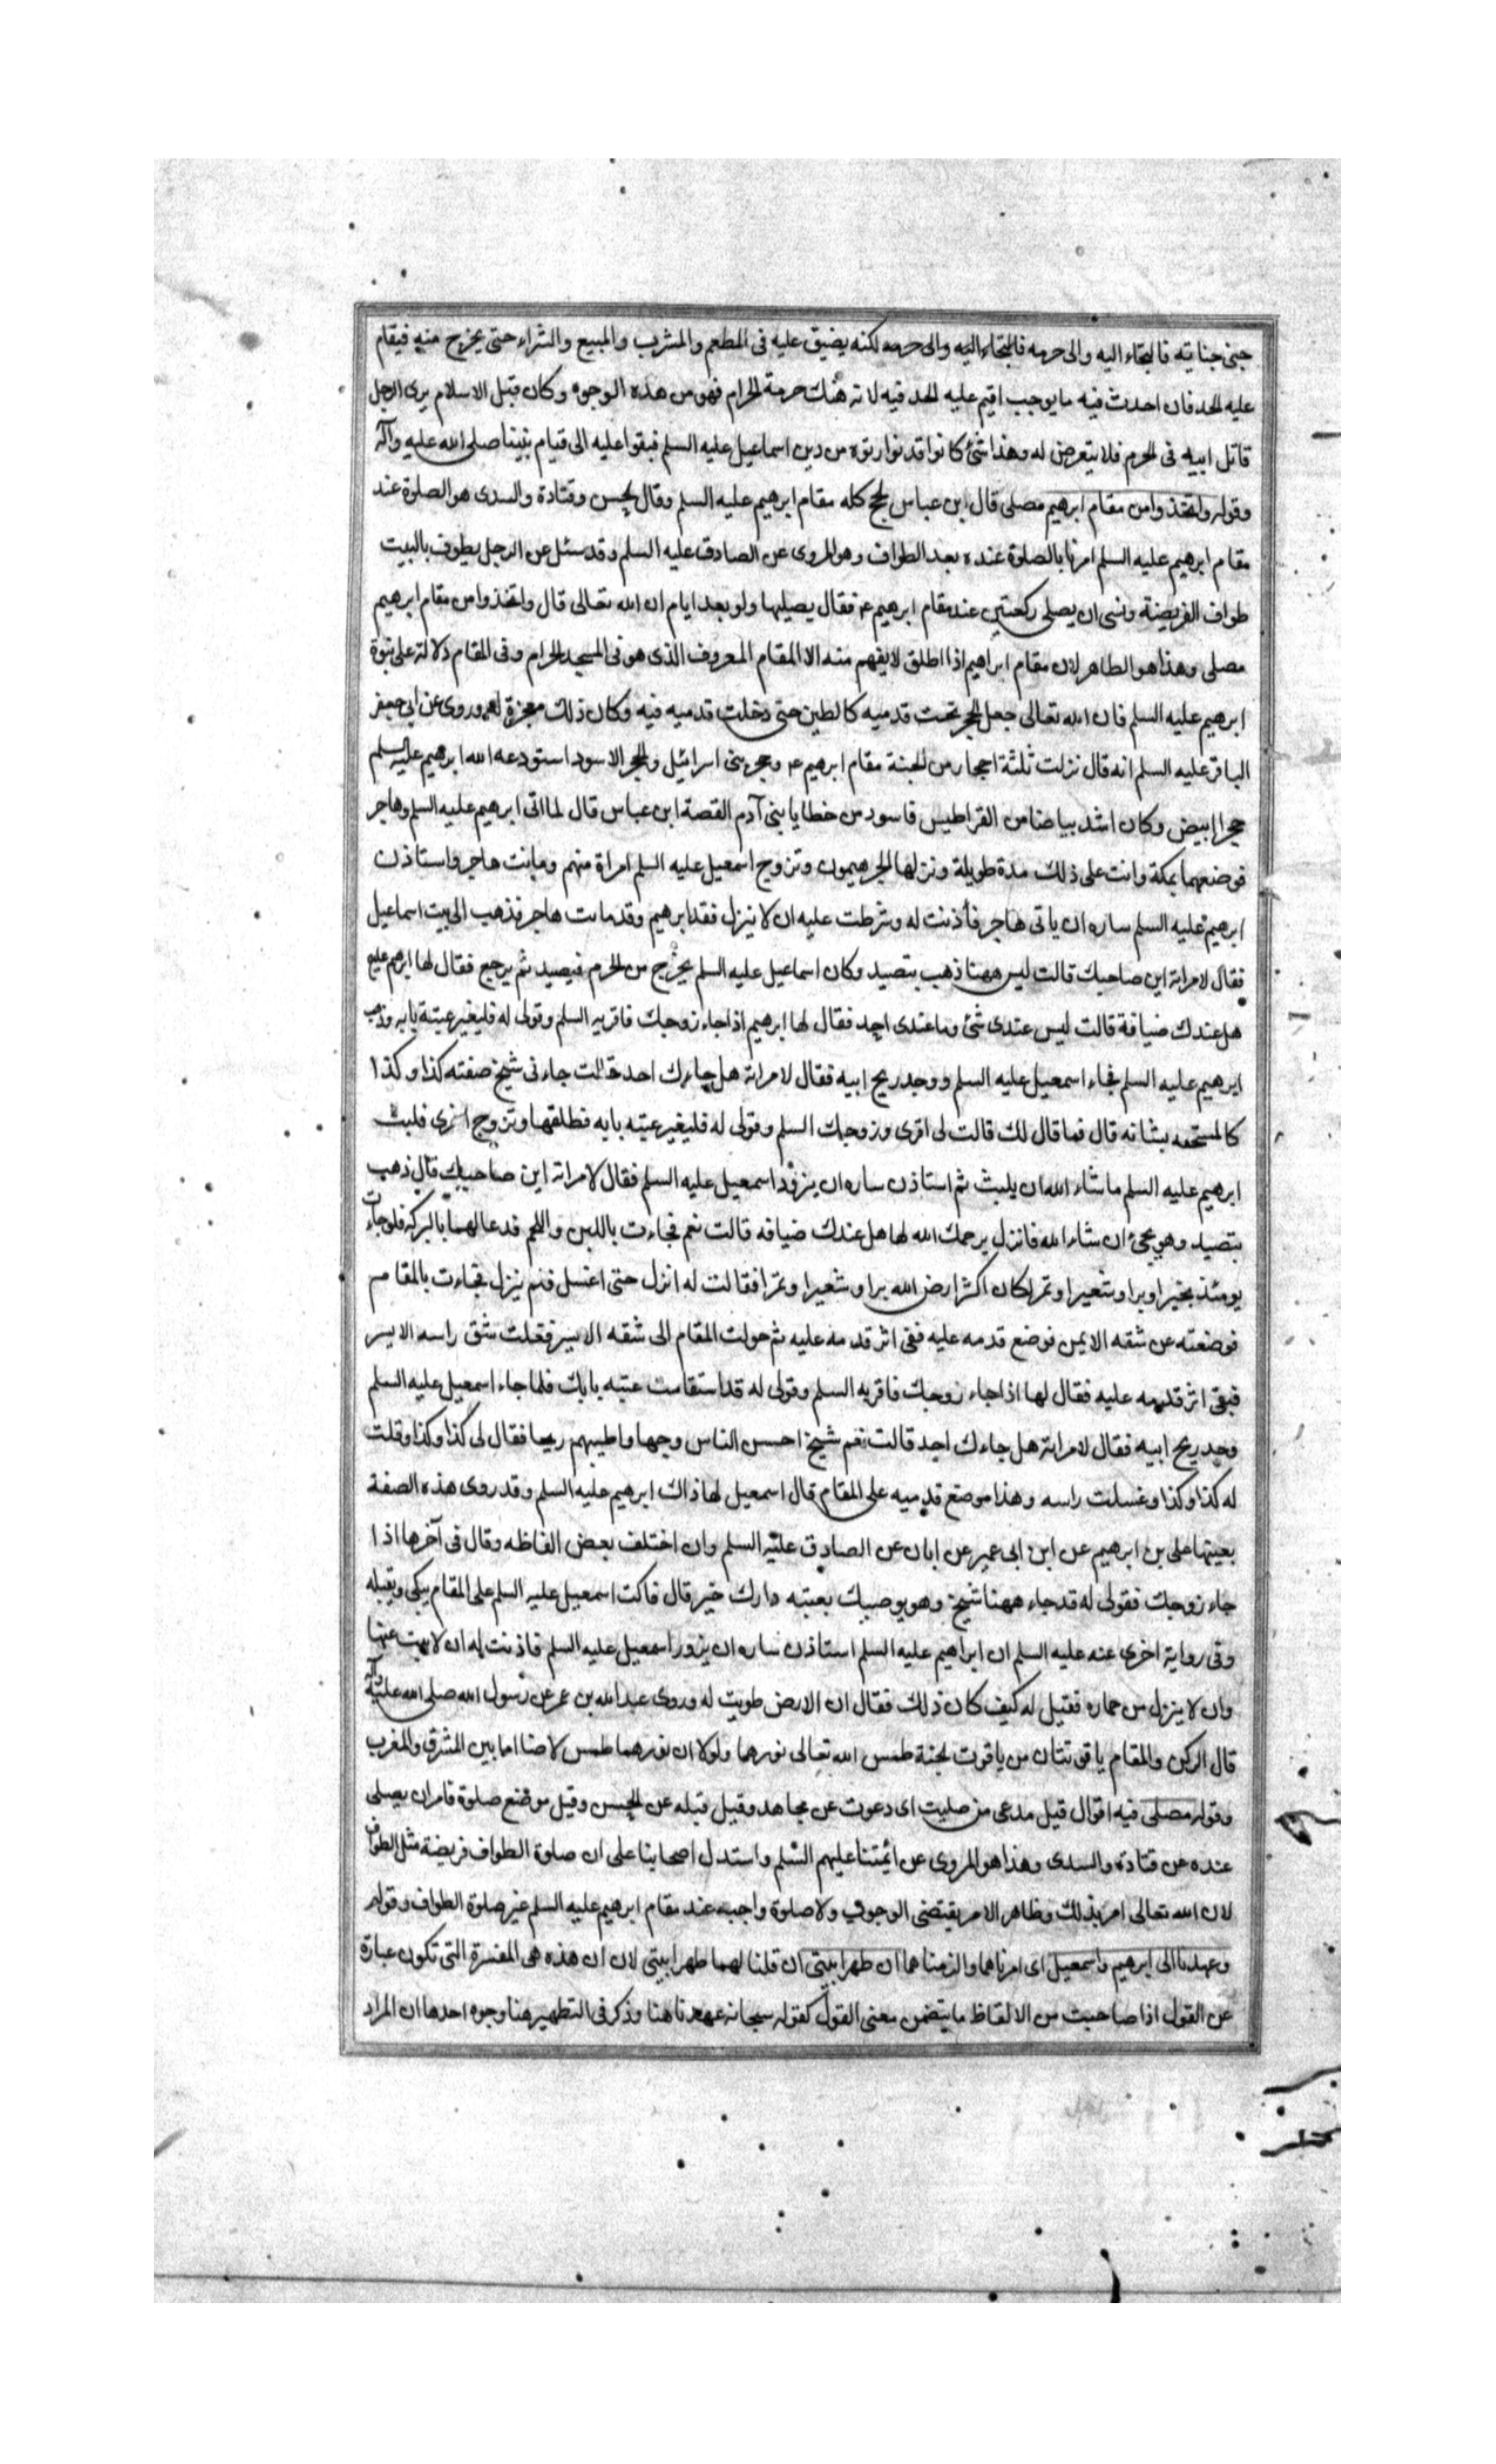 جنى جناية فالتجاء اليه والى حرمه فالتجاء اليه والى حرمه لكنه يضيق عليه فى المطعم والمشرب والمبيع والشراء حتى يخرج منه فيقام
عليه الحد فان احدث فيه ما يوجب اقيم عليه الحد فيه لانه هتك حرمة الحرام فهو من هذه الوجوه وكان قبل الاسلام يرى الرجل
قاتل ابيه فى الحرم فلا يتعرض له وهذا شئ كانوا قد توارثوه من دين اسماعيل عليه السلم فبقوا عليه الى قيام نبينا صلى الله عليه وآله
وقوله واتخذوا من مقام ابرهيم مصلى قال ابن عباس الحج كله مقام ابرهيم عليه السلم وقال الحسن وقتادة والسدى هو الصلوة عند
مقام ابرهيم عليه السلم امرنا بالصلوة عنده بعد الطواف وهو المروى عن الصادق عليه السلم وقد سئل عن الرجل يطوف بالبيت
طواف الفريضة ونسى ان يصلى ركعتين عند مقام ابرهيم ع فقال يصليها ولو بعد ايام ان الله تعالى قال واتخذوا من مقام ابرهيم
مصلى وهذا هو الظاهر لان مقام ابراهيم اذا اطلق لا يفهم منه الا المقام المعروف الذى هو فى المسجد الحرام وفى المقام دلالة على نبوة
ابرهيم عليه السلم فان الله تعالى جعل الحجر تحت قدميه كالطين حتى دخلت قدميه فيه وكان ذلك معجزة له وروى عن ابى جعفر
الباقر عليه السلم انه قال نزلت ثلثة احجار من الجنة مقام ابرهيم ع وحجر بنى اسرائيل والحجر الاسود استودعه الله ابرهيم عليه السلم
حجرا ابيض وكان اشد بياضا من القراطيس فاسود من خطايا بنى آدم القصة ابن عباس قال لما اتى ابرهيم عليه السلم وهاجر
فوضعهما بمكة واتت على ذلك مدة طويلة ونزلها الجرهيمون وتزوج اسمعيل عليه السلم امراة منهم وماتت هاجر واستاذن
ابرهيم عليه السلم ساره ان ياتى هاجر فأذنت له وشرطت عليه ان لا ينزل فقد ابرهيم وقد ماتت هاجر فذهب الى بيت اسماعيل
فقال لامراته اين صاحبك قالت ليس ههنا ذهب يتصيد وكان اسماعيل عليه السلم يخرج من الحرم فيصيد ثم يرجع فقال لها ابرهم عليه
هل عندك ضيافة قالت ليس عندى شئ وما عندى احد فقال لها ابرهيم اذا جاء زوجك فاقريه السلم وقولى له فليغير عتبة بابه وذهب
ابرهيم عليه السلم فجاء اسمعيل عليه السلم ووجد ريح ابيه فقال لامراته هل جاءك احد قالت جاءنى شيخ صفته كذا وكذا
كالمستخفه بشانه قال فما قال لك قالت لى اقرى وزوجك السلم وقولى له فليغير عتبة بابه فطلقها وتزوج اخرى فلبث
ابرهيم عليه السلم ما شاء الله ان يلبث ثم استاذن ساره ان يزور اسمعيل عليه السلم فقال لامراته اين صاحبك قال ذهب
يتصيد وهو يجئ ان شاء الله فانزل يرحمك الله لها هل عندك ضيافه قالت نعم فجاءت باللبن واللحم فدعا لهما بالبركة فلو جاءت
يومئذ بخبز او برا وشعيرا وتمر لكان اكثر ارض الله برا وشعيرا وتمرا فقالت له انزل حتى اغسل فنم ينزل فجاءت بالمقام
فوضعته عن شقه الايمن فوضع قدمه عليه فبقى اثر قدمه عليه ثم حولت المقام الى شقه الايسر فغسلت شق راسه الايسر
فبقى اثر قدمه عليه فقال لها اذا جاء زوجك فاقريه السلم وقولى له قد استقامت عتبة بابك فلما جاء اسمعيل عليه السلم
وجد ريح ابيه فقال لامراته هل جاءك احد قالت نعم شيخ احسن الناس وجها واطيبهم ريحا فقال لى كذا وكذا وقلت
له كذا وكذا وغسلت راسه وهذا موضع قدميه على المقام قال اسمعيل لها ذاك ابرهيم عليه السلم وقد روى هذه الصفة
بعينها على بن ابرهيم عن ابن ابى عمير عن ابان عن الصادق عليه السلم وان اختلف بعض الفاظه وقال فى آخرها اذا
جاء زوجك فقولى له قد جاء ههنا شيخ وهو يوصيك بعتبه دارك خير قال فاكت اسمعيل عليه السلم على المقام يبكى ويقبله
وفى رواية اخرى عنه عليه السلم ان ابراهيم عليه السلم استاذن ساره ان يزور اسمعيل عليه السلم فاذنت له ان لا يبيت عنها
وان لا ينزل من حماره فقيل له كيف كان ذلك فقال ان الارض طويت له وروى عبد الله بن عمر عن رسول الله صلى الله عليه وآله
قال الركن والمقام ياقوتتان من ياقوت الجنة طمس الله تعالى نورهما ولولا ان نورهما طمس لاضاا ما بين المشرق والمغرب
وقوله مصلى فيه اقوال قيل مدعى من صليت اى دعوت عن مجاهد وقيل قبله عن الحسن وقيل موضع صلوة فامر ان يصلى
عنده عن قتادة والسدى وهذا هو المروى عن ائمتنا عليهم السلم واستدل اصحابنا على ان صلوة الطواف فريضة مثل الطواف
لان الله تعالى امر بذلك وظاهر الامر يقتضى الوجوب ولا صلوة واجبه عند مقام ابرهيم عليه السلم غير صلوة الطواف وقوله
وعهدنا الى ابرهيم واسمعيل اى امرناهما والزمناهما ان طهرا بيتى ان قلنا لهما طهرا بيتى لان ان هذه هى المفسرة التى تكون عبارة
عن القول اذا صاحبت من الالفاظ ما يتضمن معنى القول كقوله سبحانه عهدنا هنا وذكر فى التطهير هنا وجوه احدها ان المراد